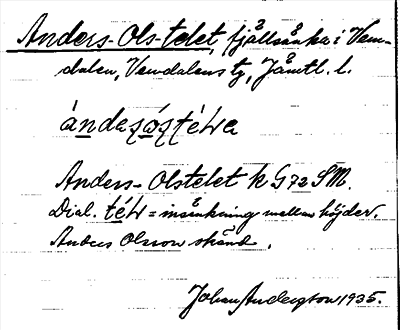 Anders-Ols-telet, fjällsänka i Vem-
dalen, Vemdalens ty, Jämtl. l.
ándasǫstéλ̣a
Anders-Olstelet k G 72 SM.
Dial. tél = insänkning mellan höjder.
Anders Olsson skänd.
Johan Anderson 1935.